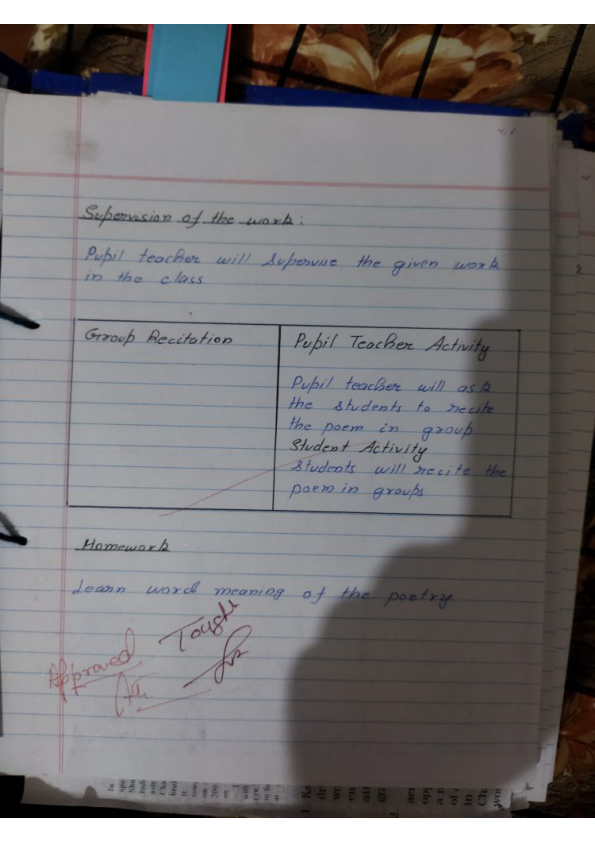 Supervision of the work:
Pupil teacher will supervise the given work
in the class
Group Recitation
Pupil Teacher Activity
Pupil teacher will ask
the students to recite
the poem in group
Student Activity
Students will recite the
poem in groups
Homework
Learn word meaning of the poetry
Taught
Approved